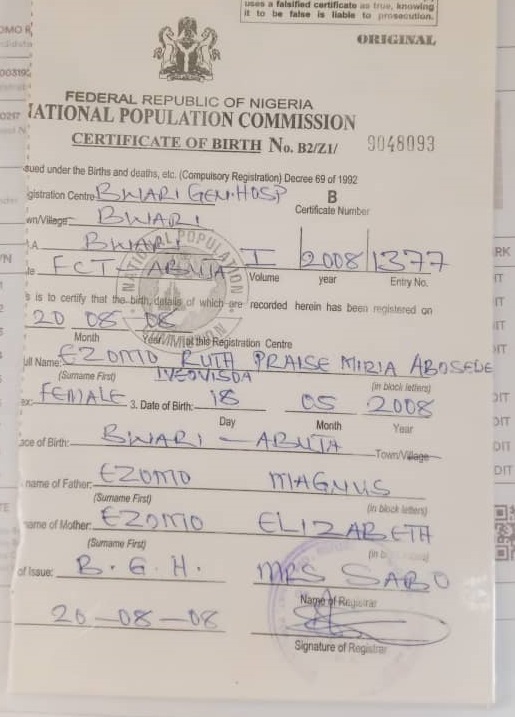 uses a falsified certificate as true, knowing
it to be false is liable to prosecution.
ORIGINAL
FEDERAL REPUBLIC OF NIGERIA
NATIONAL POPULATION COMMISSION
CERTIFICATE OF BIRTH No. B2/Z1/ 9048093
sued under the Births and deaths, etc. (Compulsory Registration) Decree 69 of 1992
gistration Centre BWARI GEN. HOSP B
Certificate Number
wn/Village BWARI
A BWARI
FCT - ABUJA I 2008 1377
Volume year Entry No.
s is to certify that the birth, details of which are recorded herein has been registered on
20 08 08
Month Year at this Registration Centre
ull Name: EZOMO RUTH PRAISE MIRIA ABOSEDE
(Surname First) (in block letters)
ex: FEMALE 3. Date of Birth: 18 05 2008
Day Month Year
ace of Birth: BWARI - ABUJA Town/Village
name of Father: EZOMO MAGNUS
(Surname First) (in block letters)
ame of Mother: EZOMO ELIZABETH
(Surname First)
of Issue: B. G. H. MRS SABO
Name of Registrar
20-08-08
Signature of Registrar
NATIONAL POPULATION COMMISSION